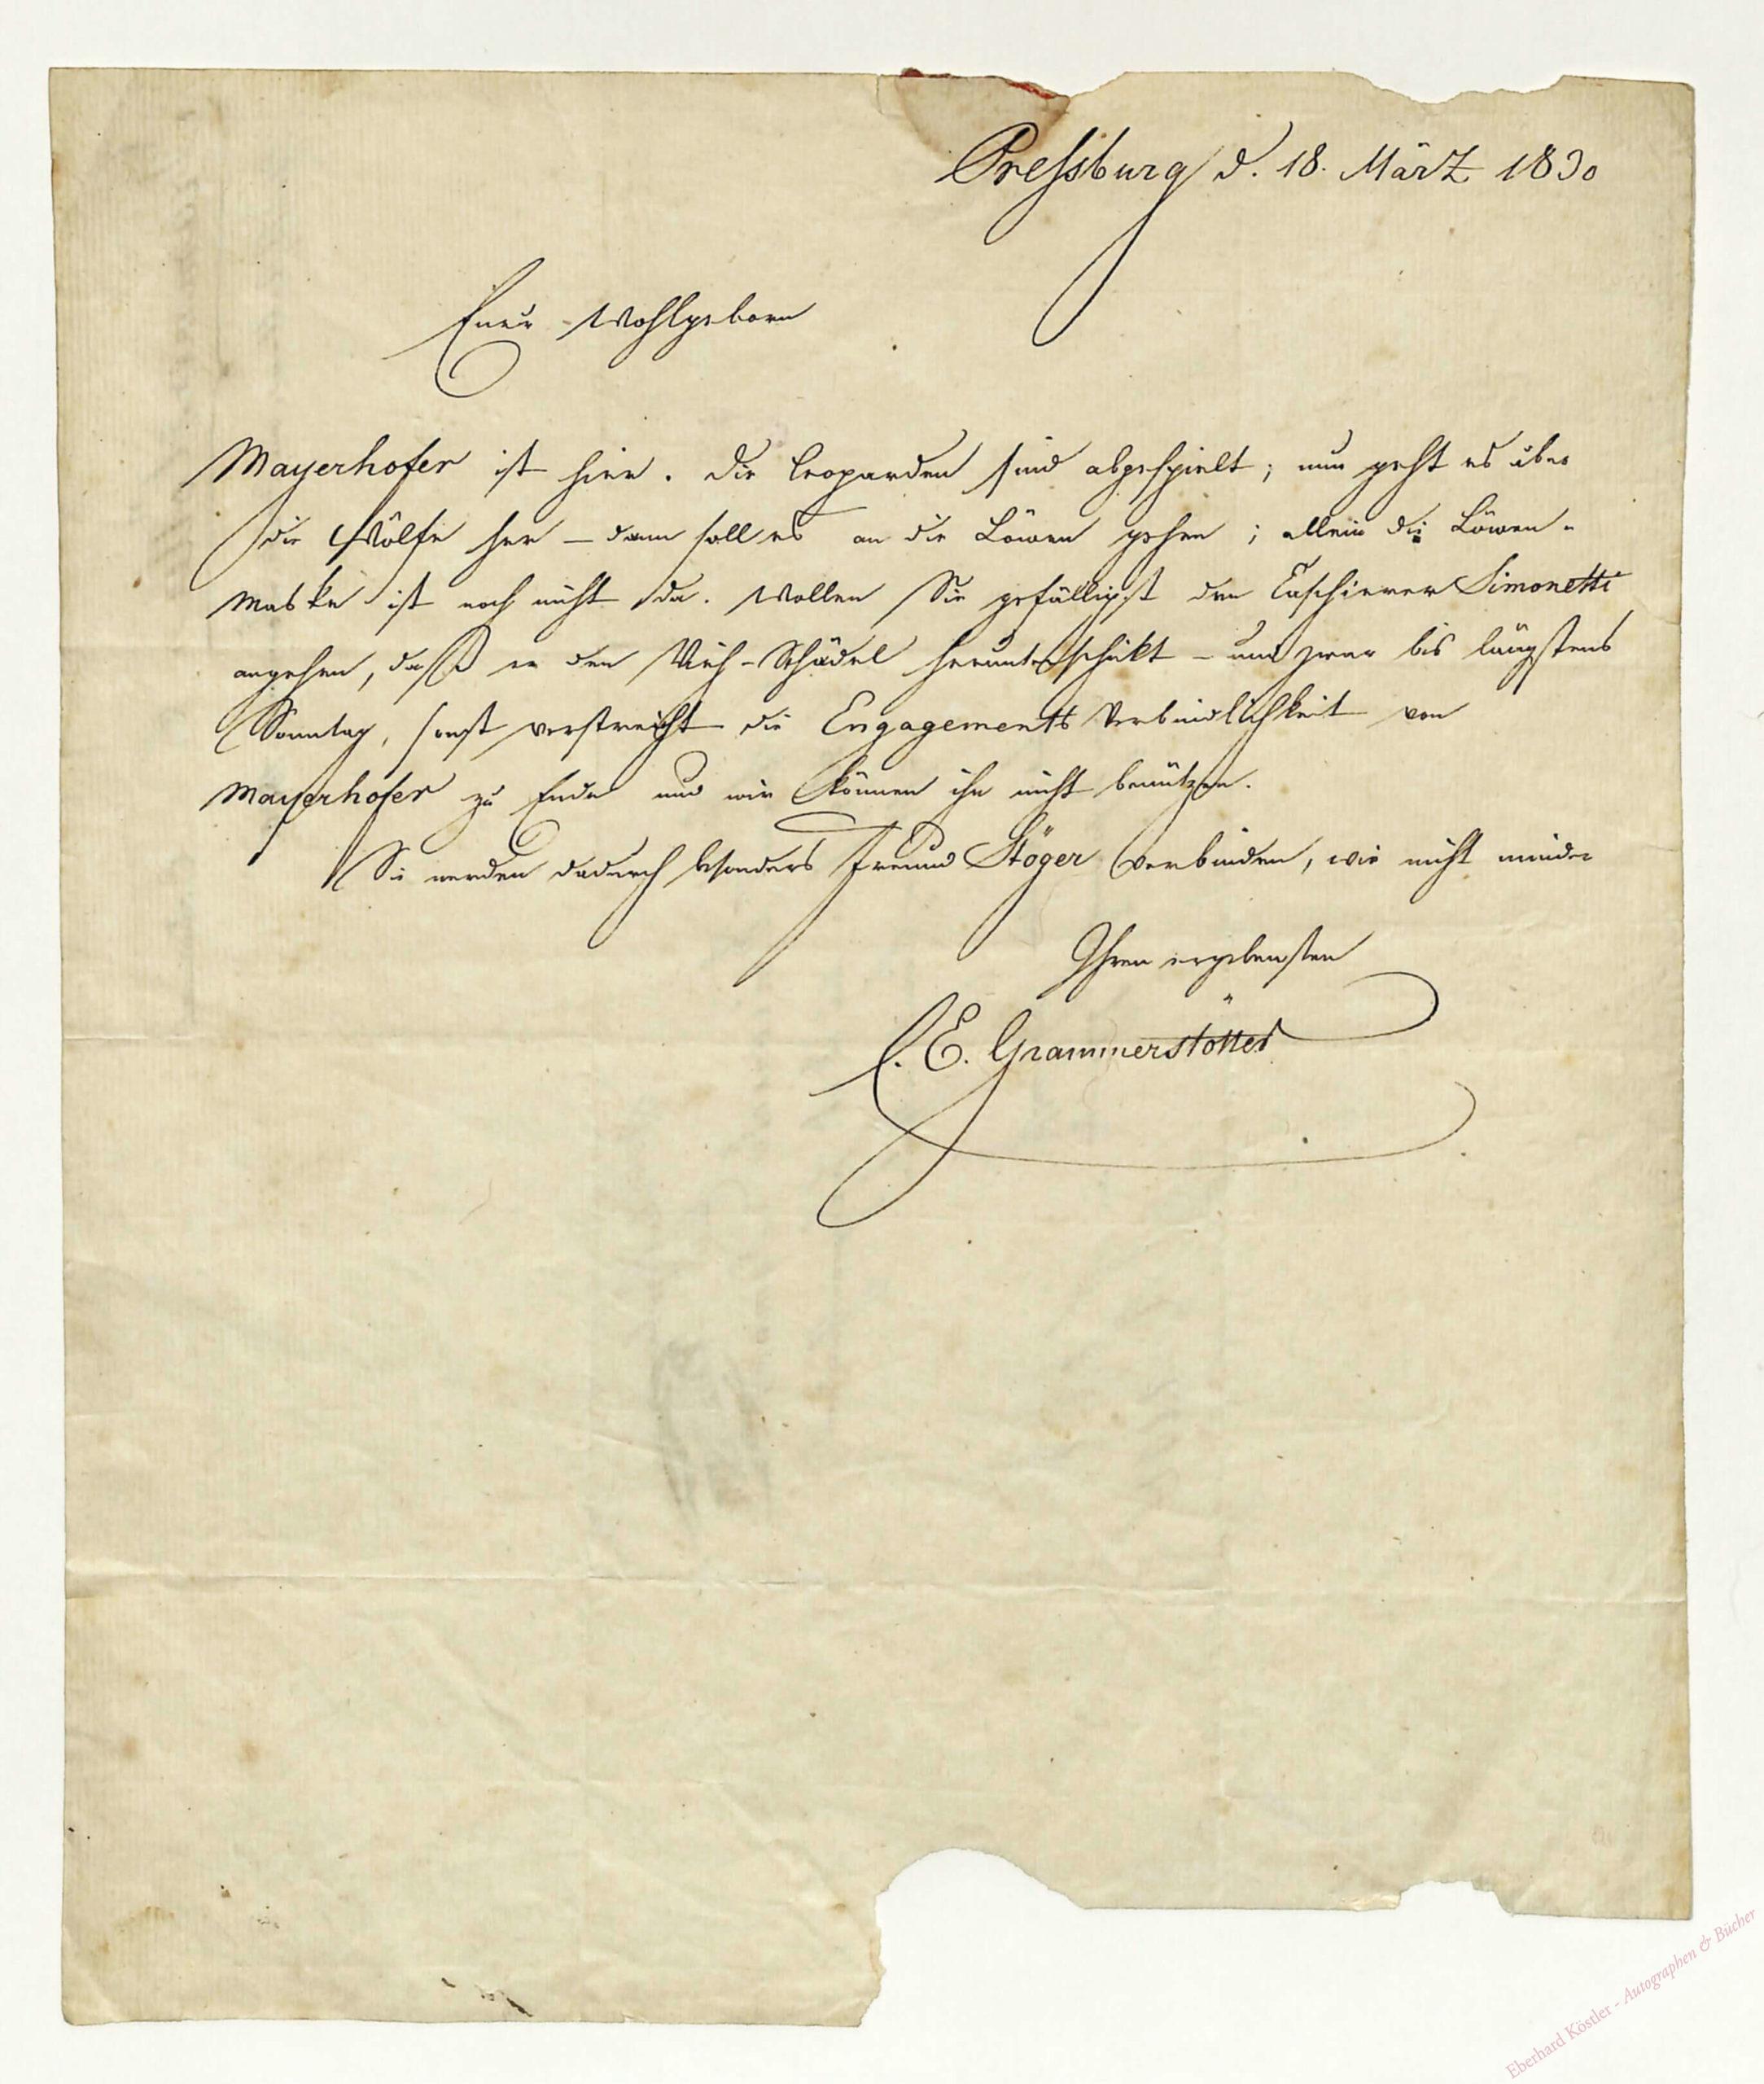 Pressburg d. 18. März 1830
Euer Wohlgeborn
Mayerhofer ist hier. Die Leoparden sind abgespielt; nun geht es über
die Wölfe her – dann soll es an die Löwen gehen; allein die Löwen-
Maske ist noch nicht da. Wollen Sie gefälligst den Caschierer Simonetti
angehen, daß er den Vieh-Schädel herunterschikt – und zwar bis längstens
Sonntag, sonst verstreicht die Engagements Verbindlichkeit von
Mayerhofer zu Ende und wir können ihn nicht benützen.
Sie werden dadurch besonders Freund Stöger verbinden, wie nicht minder
Ihren ergebensten
E. Grammerstötter
Eberhard Köstler - Autographen & Bücher